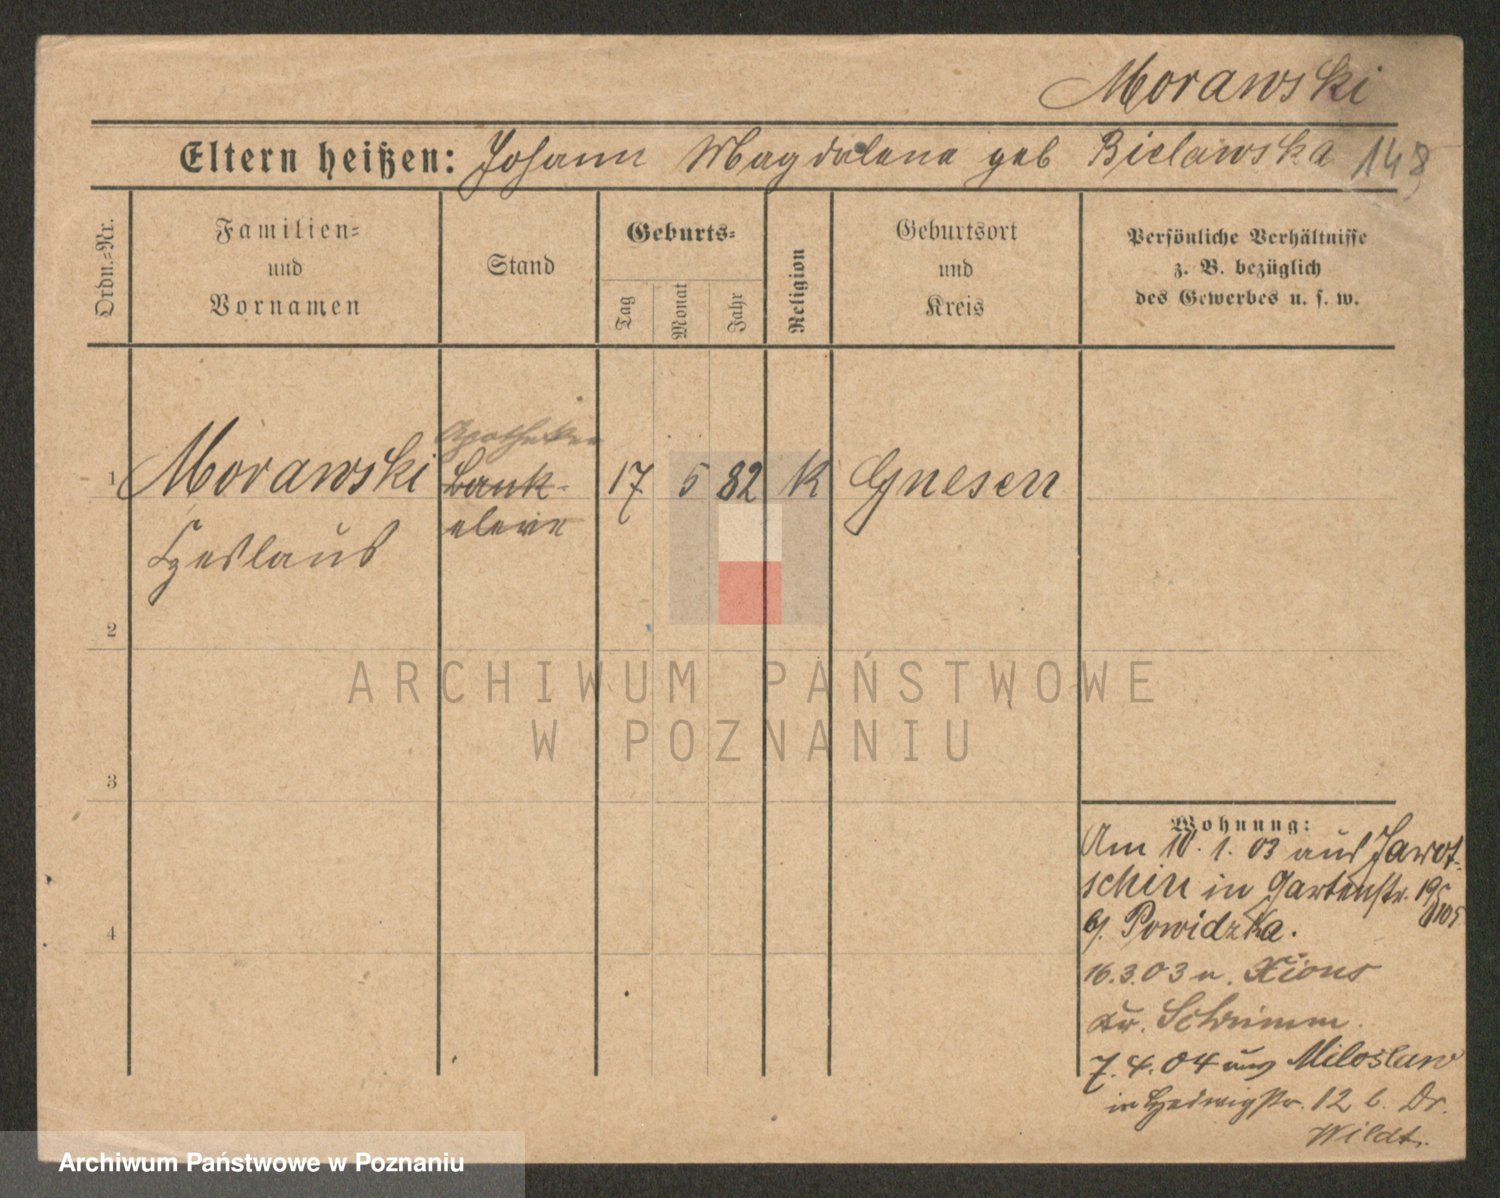 Morawski
Eltern heißen: Johann Magdalena geb Bielawska 148
Ordn.=Nr.
Familien=
und
Vornamen
Stand
Geburts=
Tag
Monat
Jahr
Religion
Geburtsort
und
Kreis
Persönliche Verhältnisse
z. B. bezüglich
des Gewerbes u. s. w.
Apotheker
1 Morawski Bank- 17 5 82 K Gnesen
Czeslaus eleve
2
3
4
ARCHIWUM PAŃSTWOWE
W POZNANIU
Wohnung:
Am 10. 1. 03 aus Jarot-
schin in Gartenstr. 19
b/. Powidzka.
16.3.03 n. Xions
Kr. Schrimm.
7. 4. 04 aus Miloslaw
in Hedwigstr. 12 b. Dr.
Wildt.
Archiwum Państwowe w Poznaniu